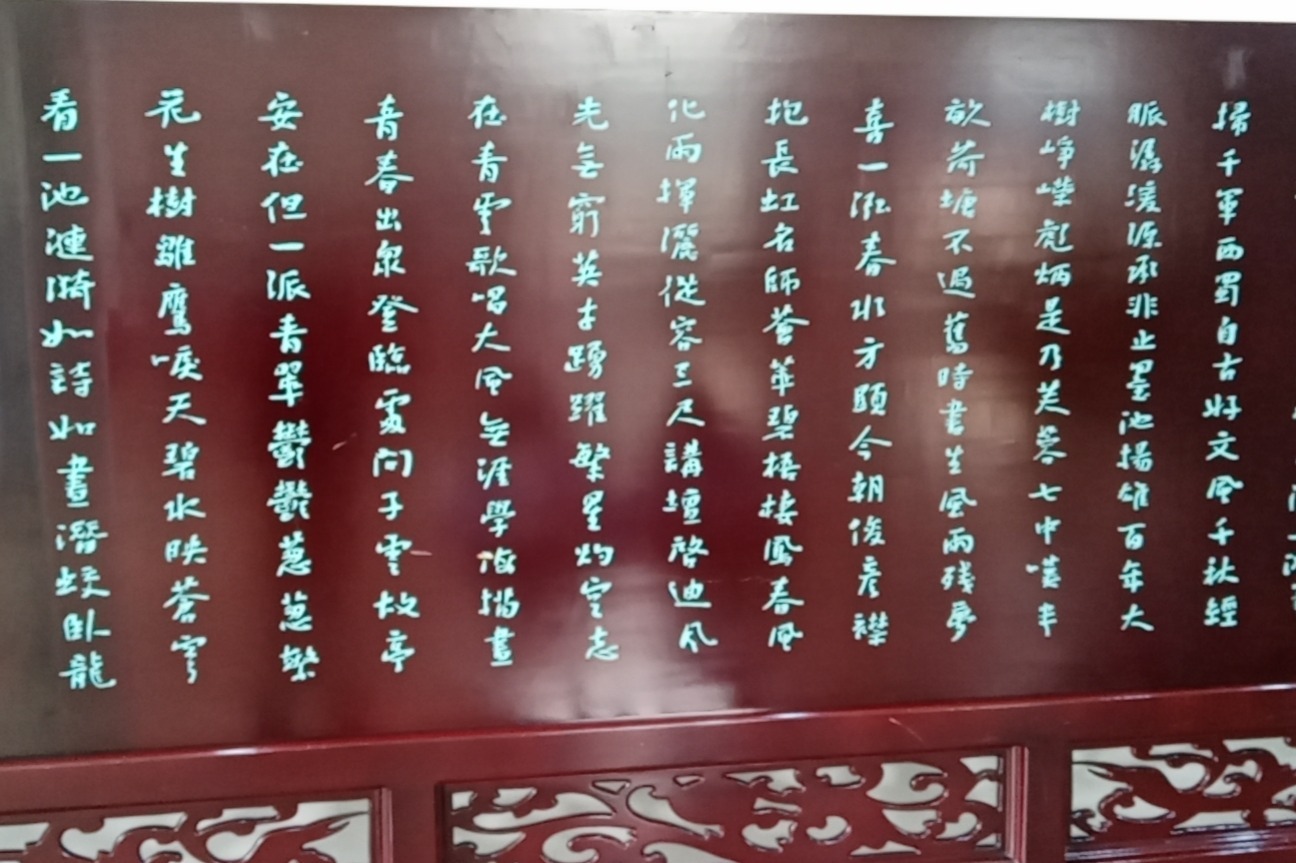 掃千軍西蜀自古好文風千秋經
脈潺湲源承非止墨池揚雄百年大
樹崢嶸彪炳是乃芙蓉七中嘆半
畝荷塘不過舊時書生風雨殘夢
喜一泓春水方頤今朝俊彥襟
抱長虹名師薈萃碧梧棲鳳春風
化雨揮灑從容三尺講壇啓迪風
先無窮英才踴躍繁星灼空志
在青雲歌唱大風無涯學海指畫
青春出泉登臨處問子雲故亭
安在但一派青翠鬱鬱蔥蔥繁
花生樹雛鷹唳天碧水映蒼穹
看一池漣漪如詩如畫潛蛟臥龍